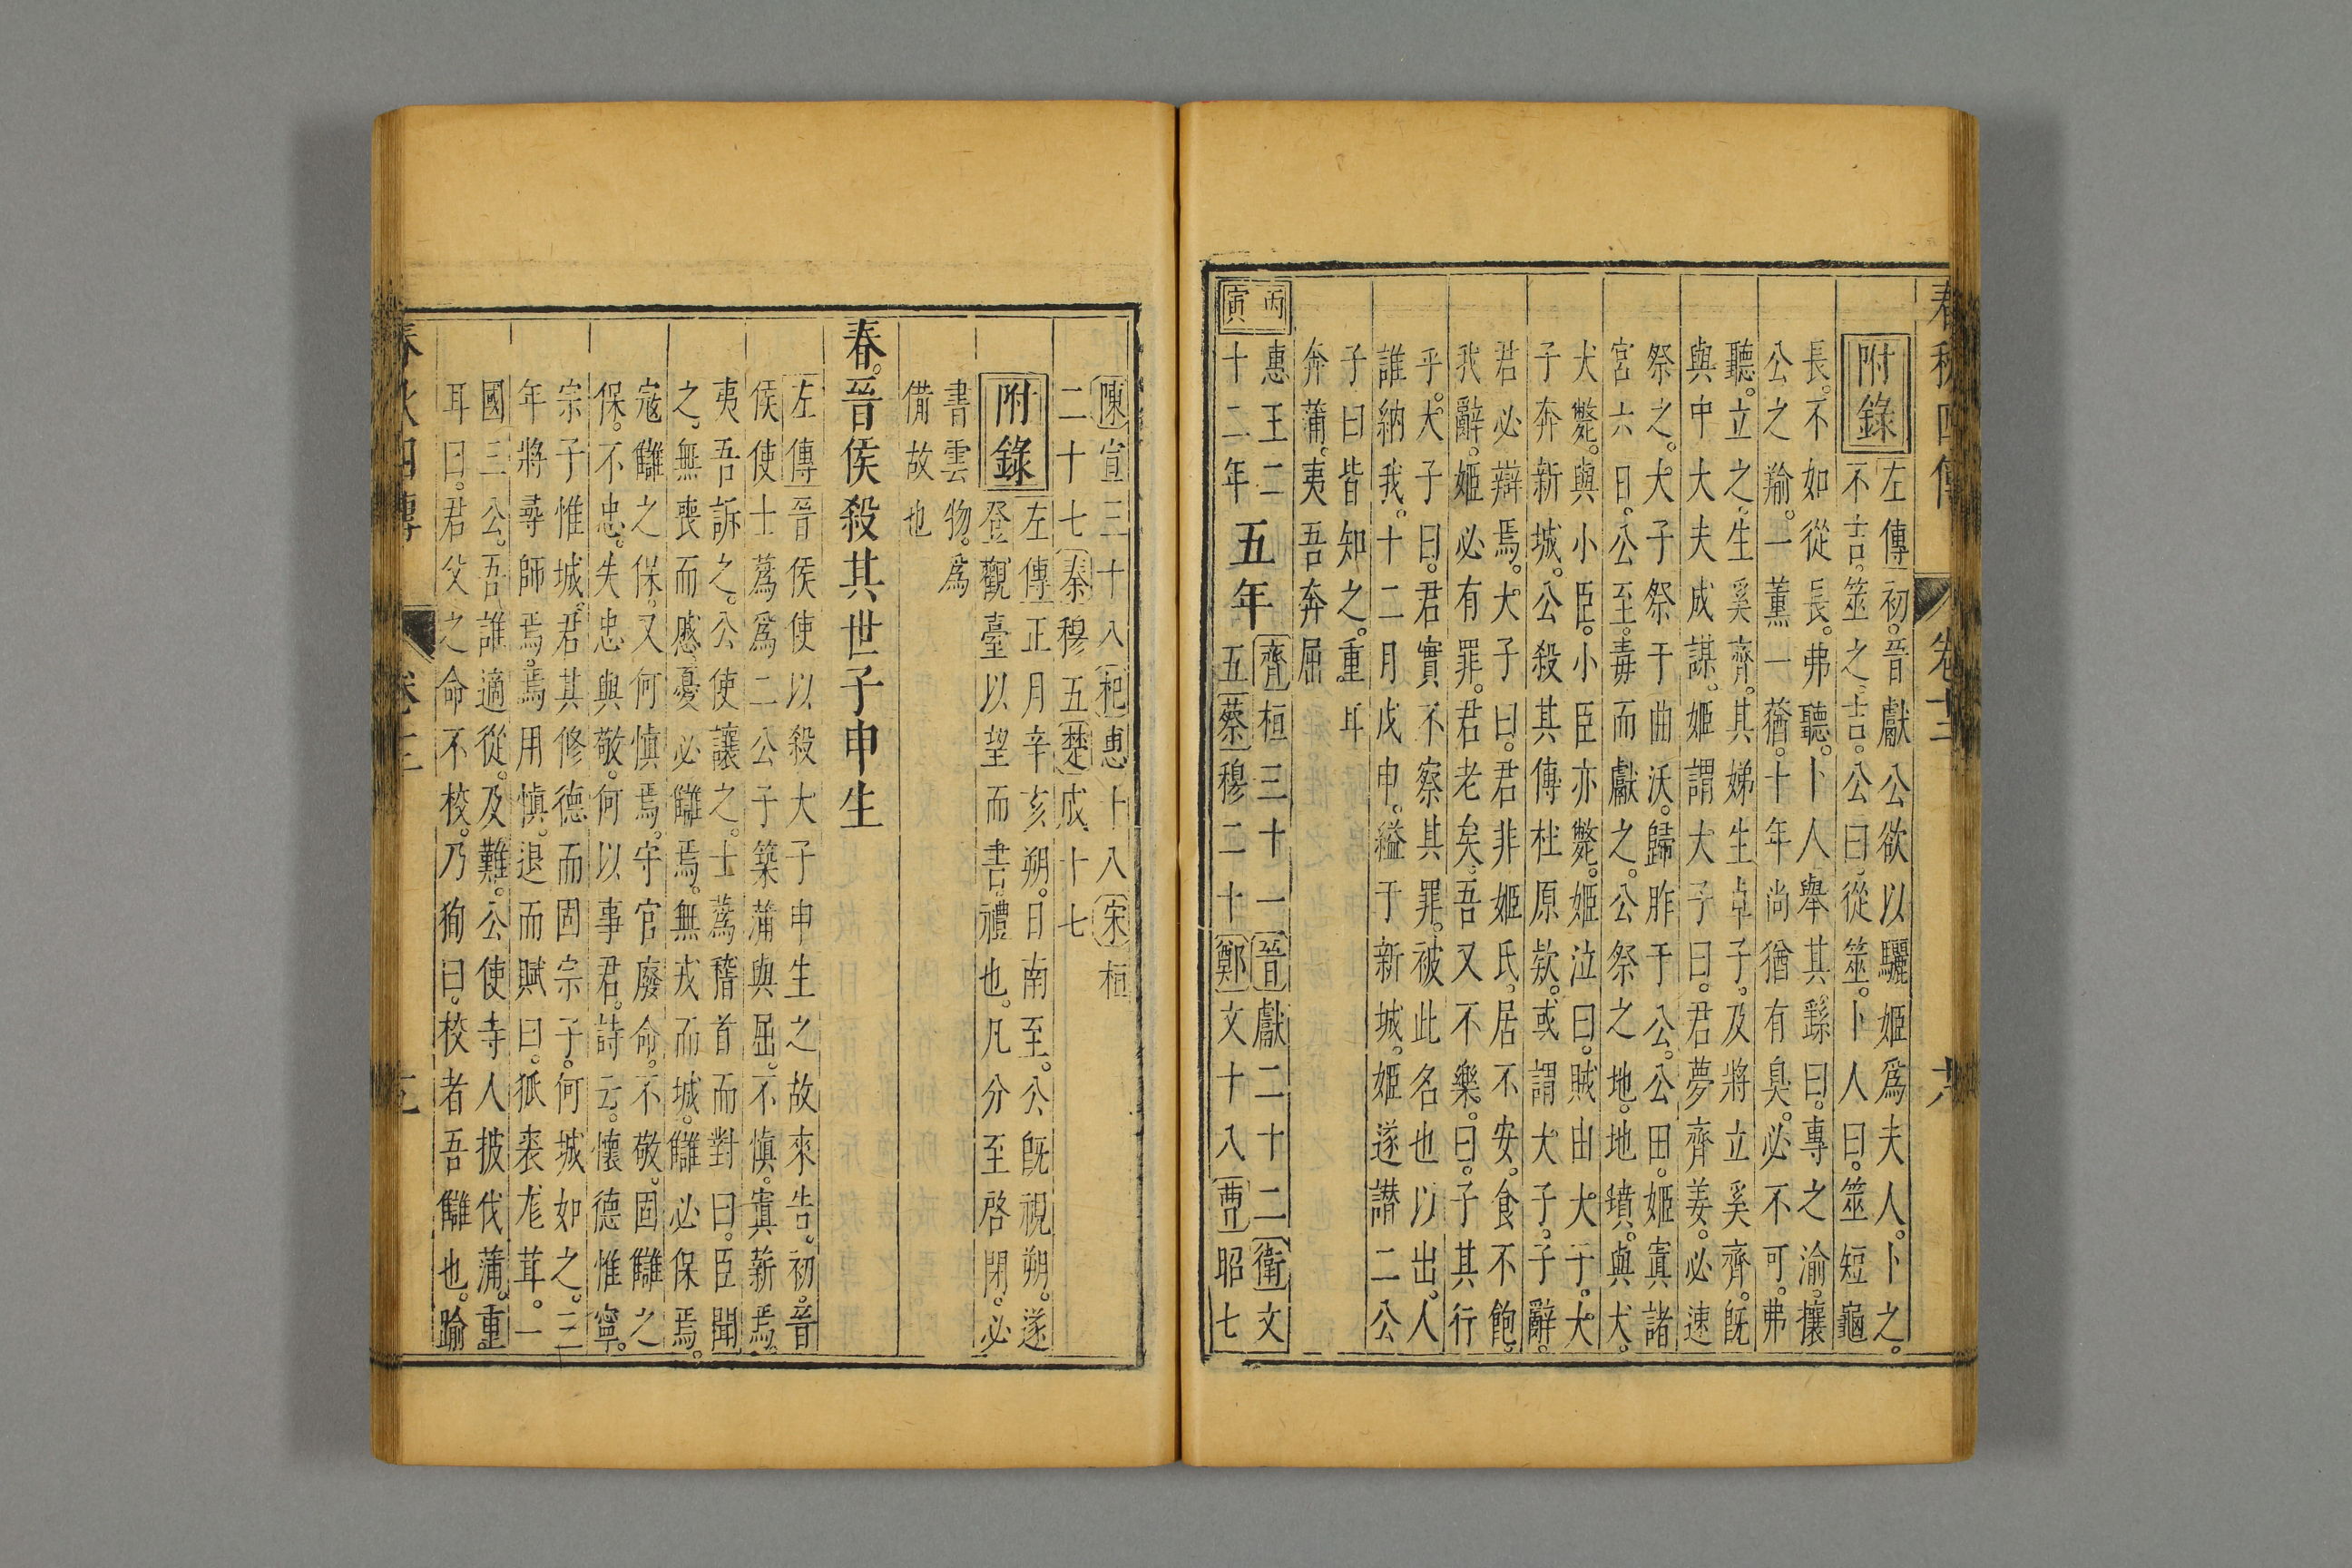 春秋四傳 卷十三
附錄
左傳初。晉獻公欲以驪姬爲夫人。卜之。
不吉。筮之吉。公曰。從筮。卜人曰。筮短龜
長。不如從長。弗聽。卜人舉其繇曰。專之渝。攘
公之羭。一薰一蕕。十年尚猶有臭。必不可。弗
聽。立之。生奚齊。其娣生卓子。及將立奚齊。旣
與中大夫成謀。姬謂大子曰。君夢齊姜。必速
祭之。大子祭于曲沃。歸胙于公。公田。姬寘諸
宮六日。公至。毒而獻之。公祭之地。地墳。與犬。
犬斃。與小臣。小臣亦斃。姬泣曰。賊由大子。大
子奔新城。公殺其傅杜原款。或謂大子。子辭。
君必辯焉。大子曰。君非姬氏。居不安。食不飽。
我辭。姬必有罪。君老矣。吾又不樂。曰。子其行
乎。大子曰。君實不察其罪。被此名也以出。人
誰納我。十二月戊申。縊于新城。姬遂譖二公
子曰皆知之。重耳
奔蒲。夷吾奔屈
丙寅
惠王二十二年
五年
齊桓三十一晉獻二十二衛文
五蔡穆二十鄭文十八曹昭七
陳宣三十八杞惠十八宋桓
二十七秦穆五楚成十七
附錄
左傳正月辛亥朔。日南至。公旣視朔。遂
登觀臺以望而書。禮也。凡分至啓閉。必
書雲物。爲
備故也
春。晉侯殺其世子申生
左傳晉侯使以殺大子申生之故來告。初。晉
侯使士蔿爲二公子築蒲與屈。不愼。寘薪焉。
夷吾訴之。公使讓之。士蔿稽首而對曰。臣聞
之。無喪而慼。憂必讎焉。無戎而城。讎必保焉。
寇讎之保。又何愼焉。守官廢命。不敬。固讎之
保。不忠。失忠與敬。何以事君。詩云。懷德惟寧。
宗子惟城。君其修德而固宗子。何城如之。三
年將尋師焉。焉用愼。退而賦曰。狐裘尨茸。一
國三公。吾誰適從。及難。公使寺人披伐蒲。重
耳曰。君父之命不校。乃徇曰。校者吾讎也。踰
春秋四傳 卷十三